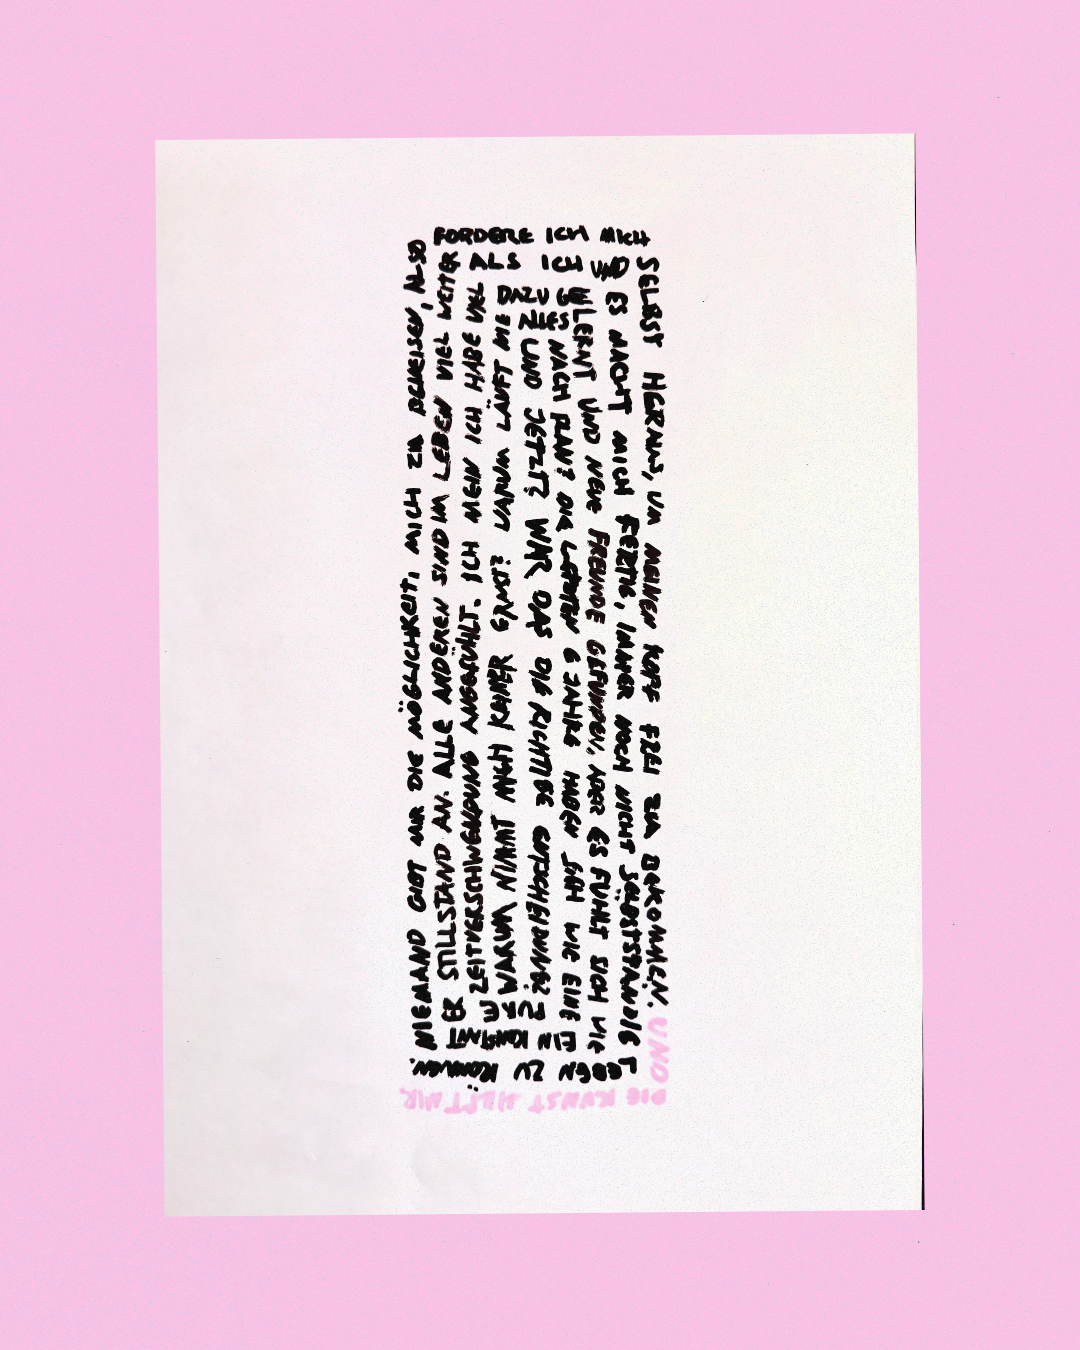 UND JETZT? WAR DAS DIE RICHTIGE ENTSCHEIDUNG?
WARUM NIMMT MICH KEINER ERNST? WARUM LÄUFT NIE
ALLES
NACH PLAN? DIE LETZTEN 6 JAHRE HABEN SICH WIE EINE
PURE
ZEITVERSCHWENDUNG ANGEFÜHLT. ICH MEIN ICH HABE VIEL
DAZU GE
LERNT UND NEUE FREUNDE GEFUNDEN, ABER ES FÜHLT SICH WIE
EIN KONSTANT
ER STILLSTAND AN. ALLE ANDEREN SIND IM LEBEN VIEL WEITER
ALS ICH UND
ES MACHT MICH FERTIG, IMMER NOCH NICHT SELBSTSTÄNDIG
LEBEN ZU KÖNNEN.
NIEMAND GIBT MIR DIE MÖGLICHKEIT, MICH ZU BEWEISEN, ALSO
FORDERE ICH MICH
SELBST HERAUS, UM MEINEN KOPF FREI ZU BEKOMMEN. UND
DIE KUNST HILFT MIR